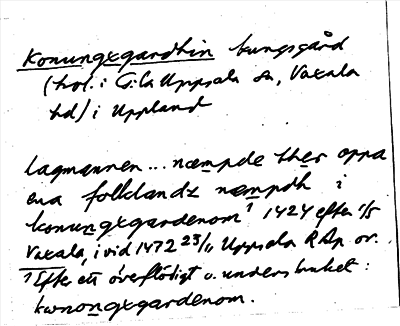 Konungxgardhin kungsgård
(trol. i G:la Uppsala sn, Vaxala
hd) i Uppland
lagmannen... næmpde ther oppa
ena folklandz næmpdh i
konungxgardenom¹ 1424 efter 1/5
Vaxala, i vid 1472 23/11 Uppsala RAp. or.
¹ Efter ett överflödigt o. understruket:
kwnongxgardenom.